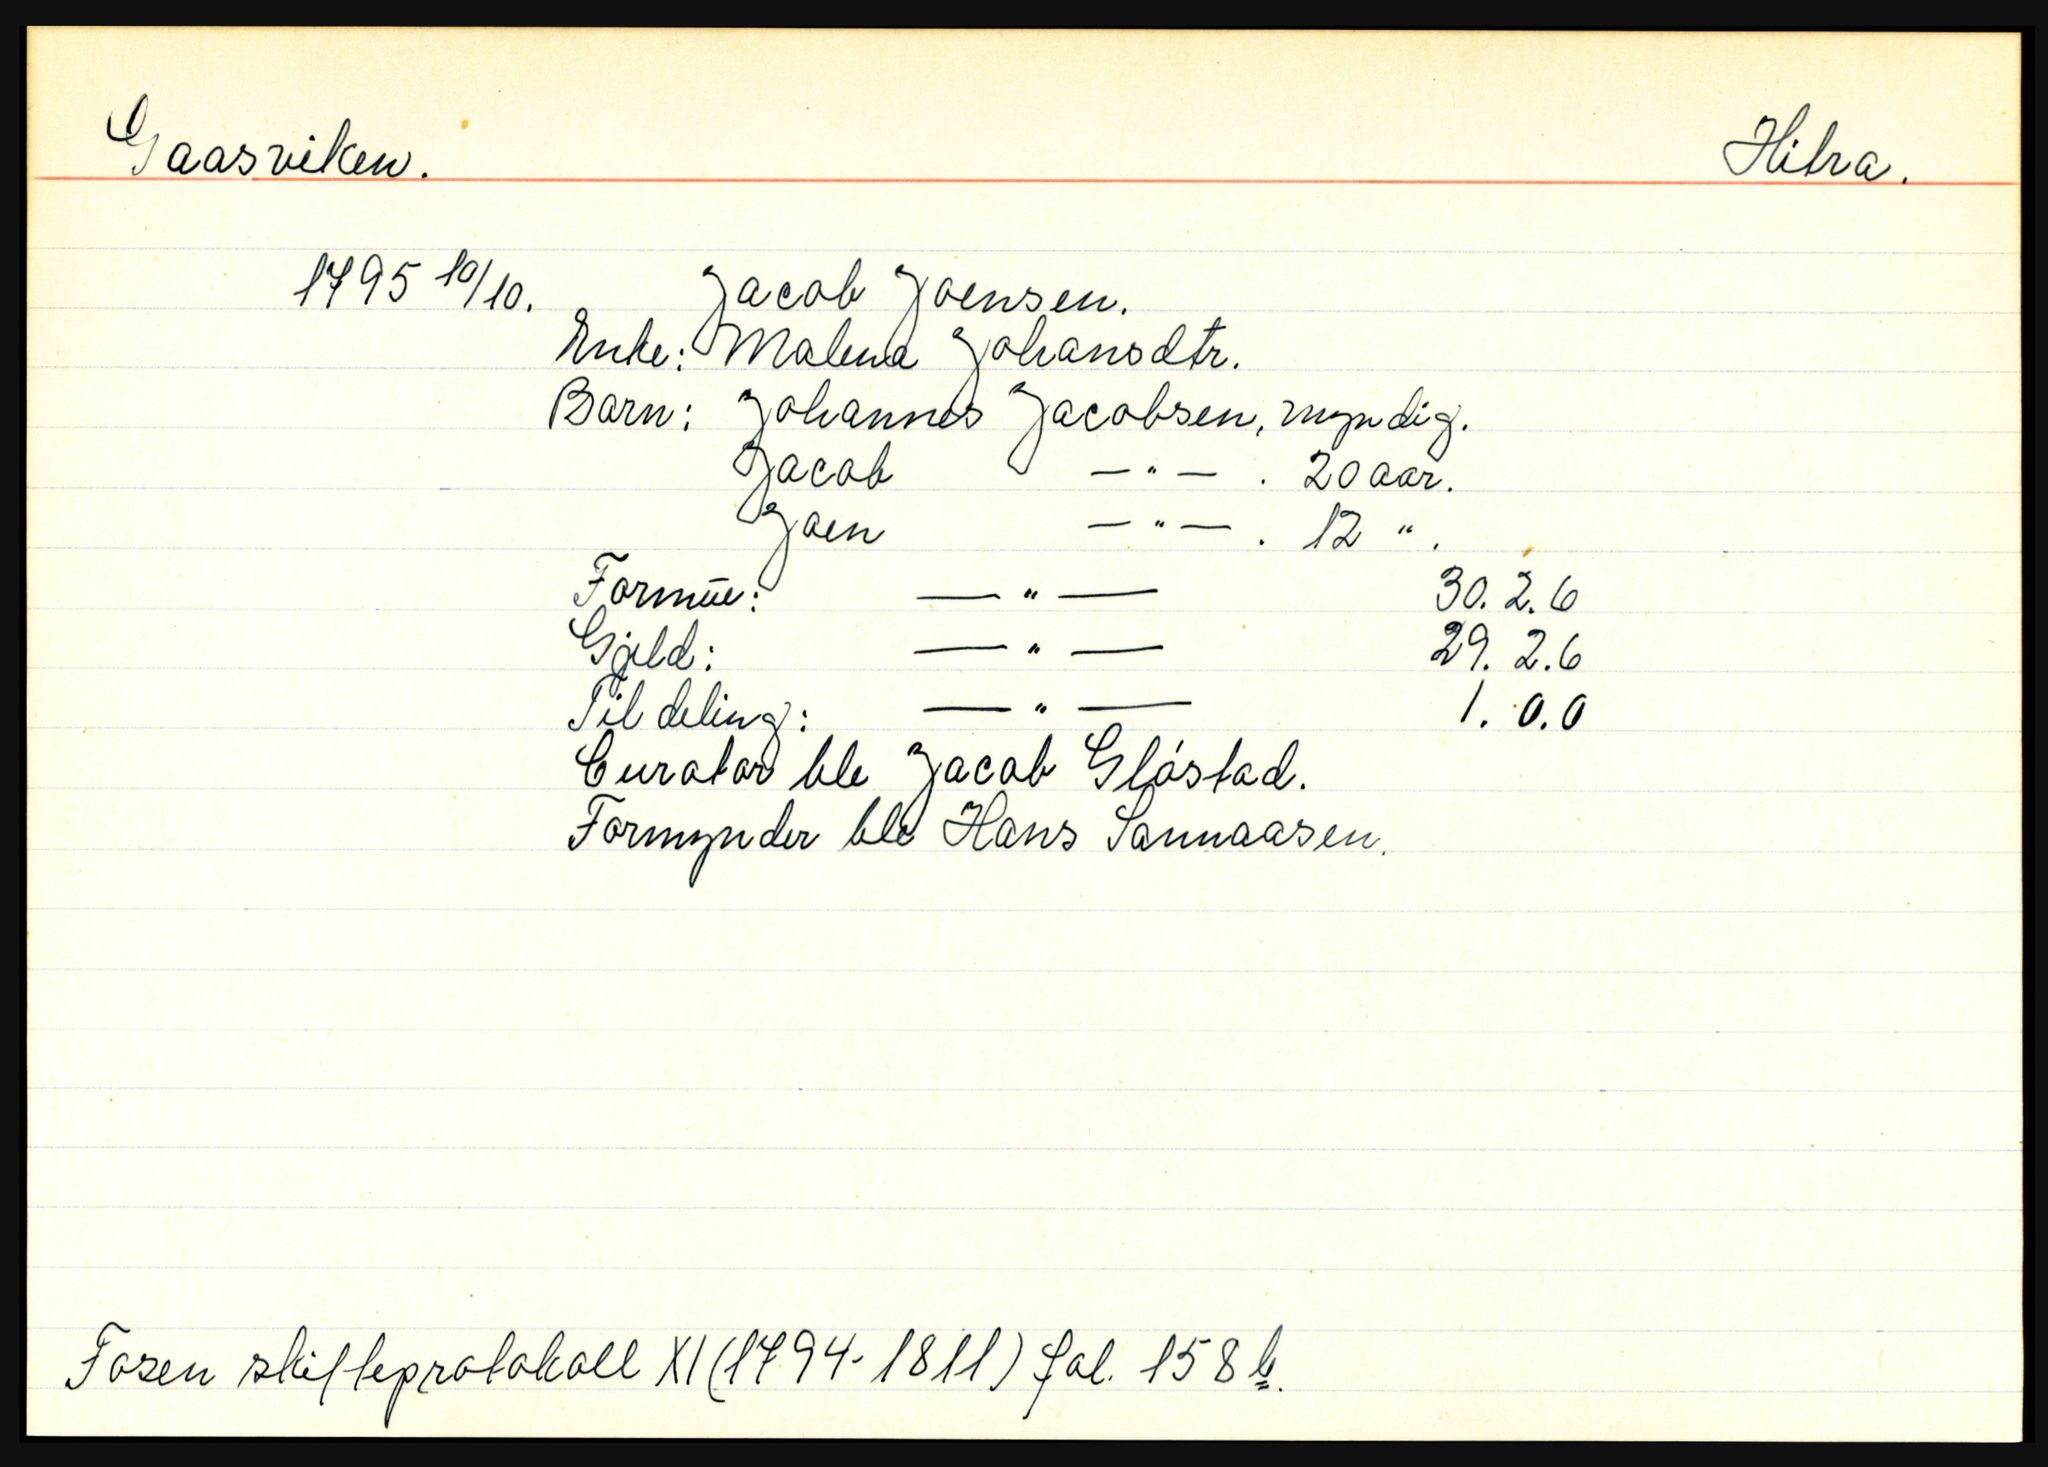 Gaasviken. Hitra.
1795 10/10. Jacob Joensen.
Enke: Malena Johansdtr.
Barn: Johannes Jacobsen, myndig.
Jacob —"— . 20 aar.
Joen —"— . 12 " .
Formue: —"— 30. 2. 6
Gjeld: —"— 29. 2. 6
Til deling: —"— 1. 0. 0
Curator ble Jacob Gløstad.
Formynder ble Hans Sannaasen.
Fosen skifteprotokoll XI (1794-1811) fol. 158 b.